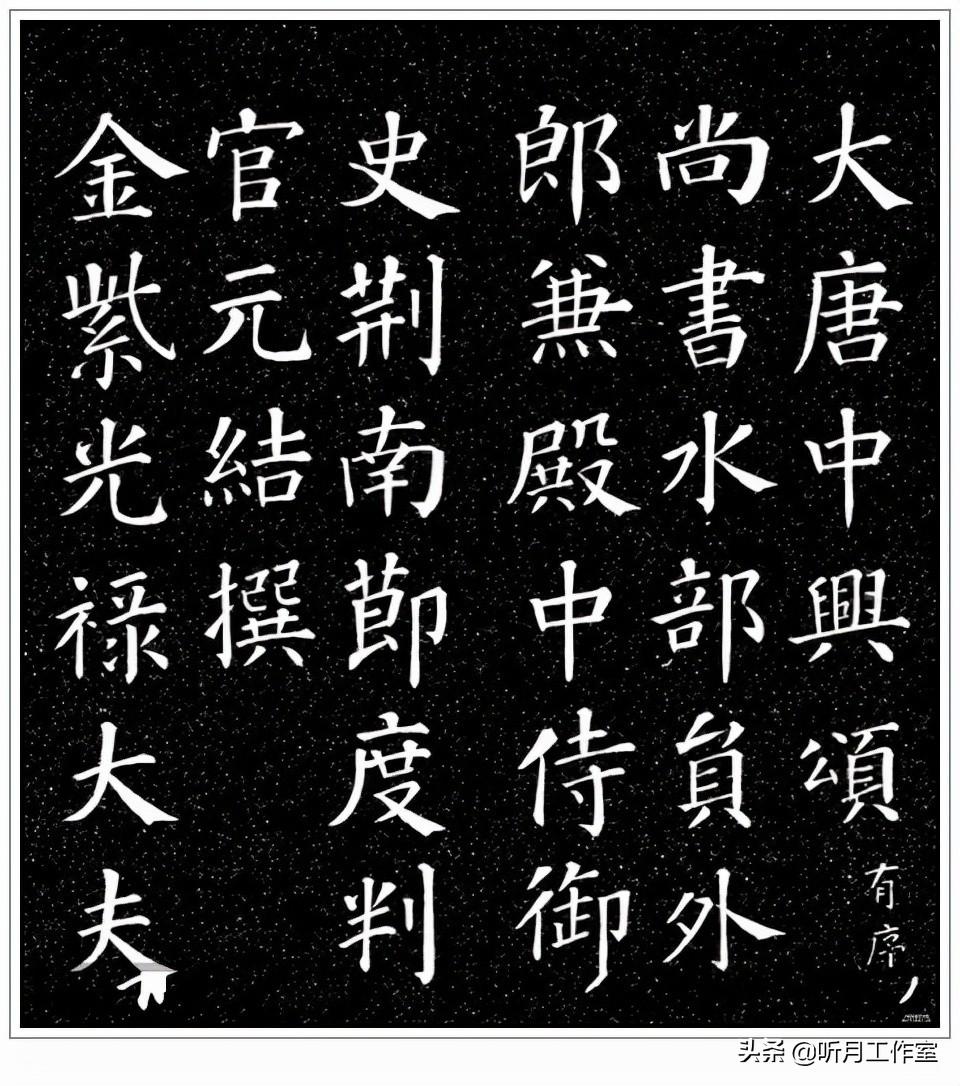 大唐中興頌有序
尚書水部負外
郎兼殿中侍御
史荆南莭度判
官元結撰
金紫光禄大夫
头条 @听月工作室